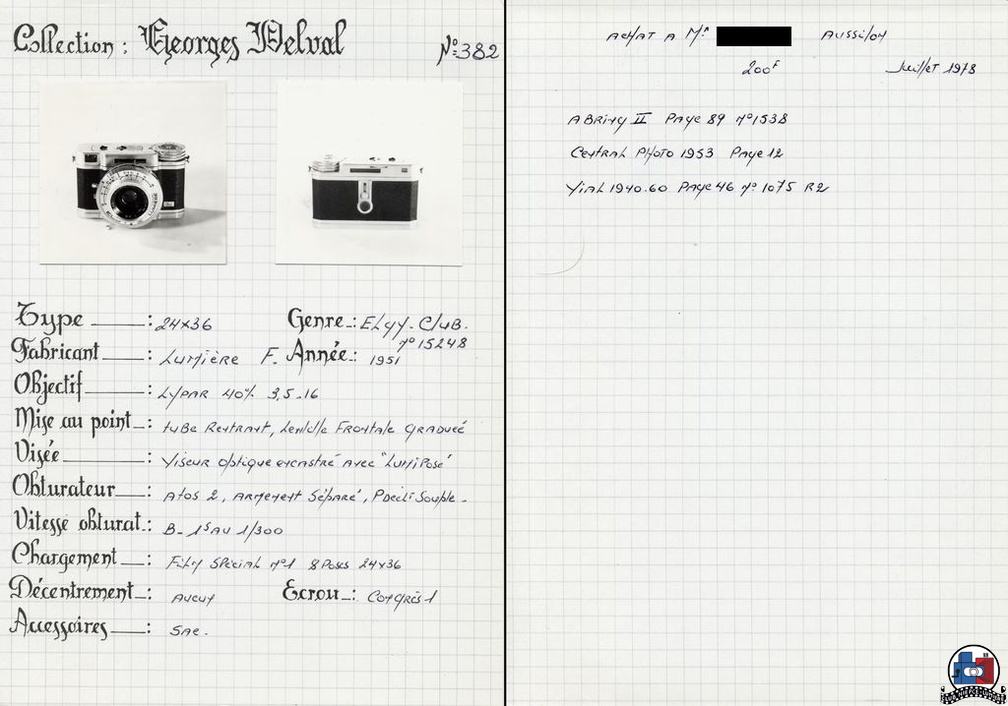 Collection : Georges Delval N°:382
Type : 24x36 Genre : ELGY-CluB.
n°15248
Fabricant : Lumière F. Année : 1951
Objectif : LYPAR 40% 3,5-16
Mise au point : tuBe Rentrant, lentille Frontale GRADUÉE
Visée : Viseur optique encastré avec "LUMIPOSE"
Obturateur : Atos 2, ARMEMENT Séparé, P Decl. Souple -
Vitesse obturat. : B - 1s AU 1/300
Chargement : Film Spécial n°1 8 Poses 24x36
Décentrement : Aucun Ecrou : Congrès 1
Accessoires : Sac.
ACHAT A Mr AUSSILON
200F Juillet 1978
ABRING II Page 89 n°1538
Central Photo 1953 Page 12
Vial 1940.60 Page 46 n° 1075 R2